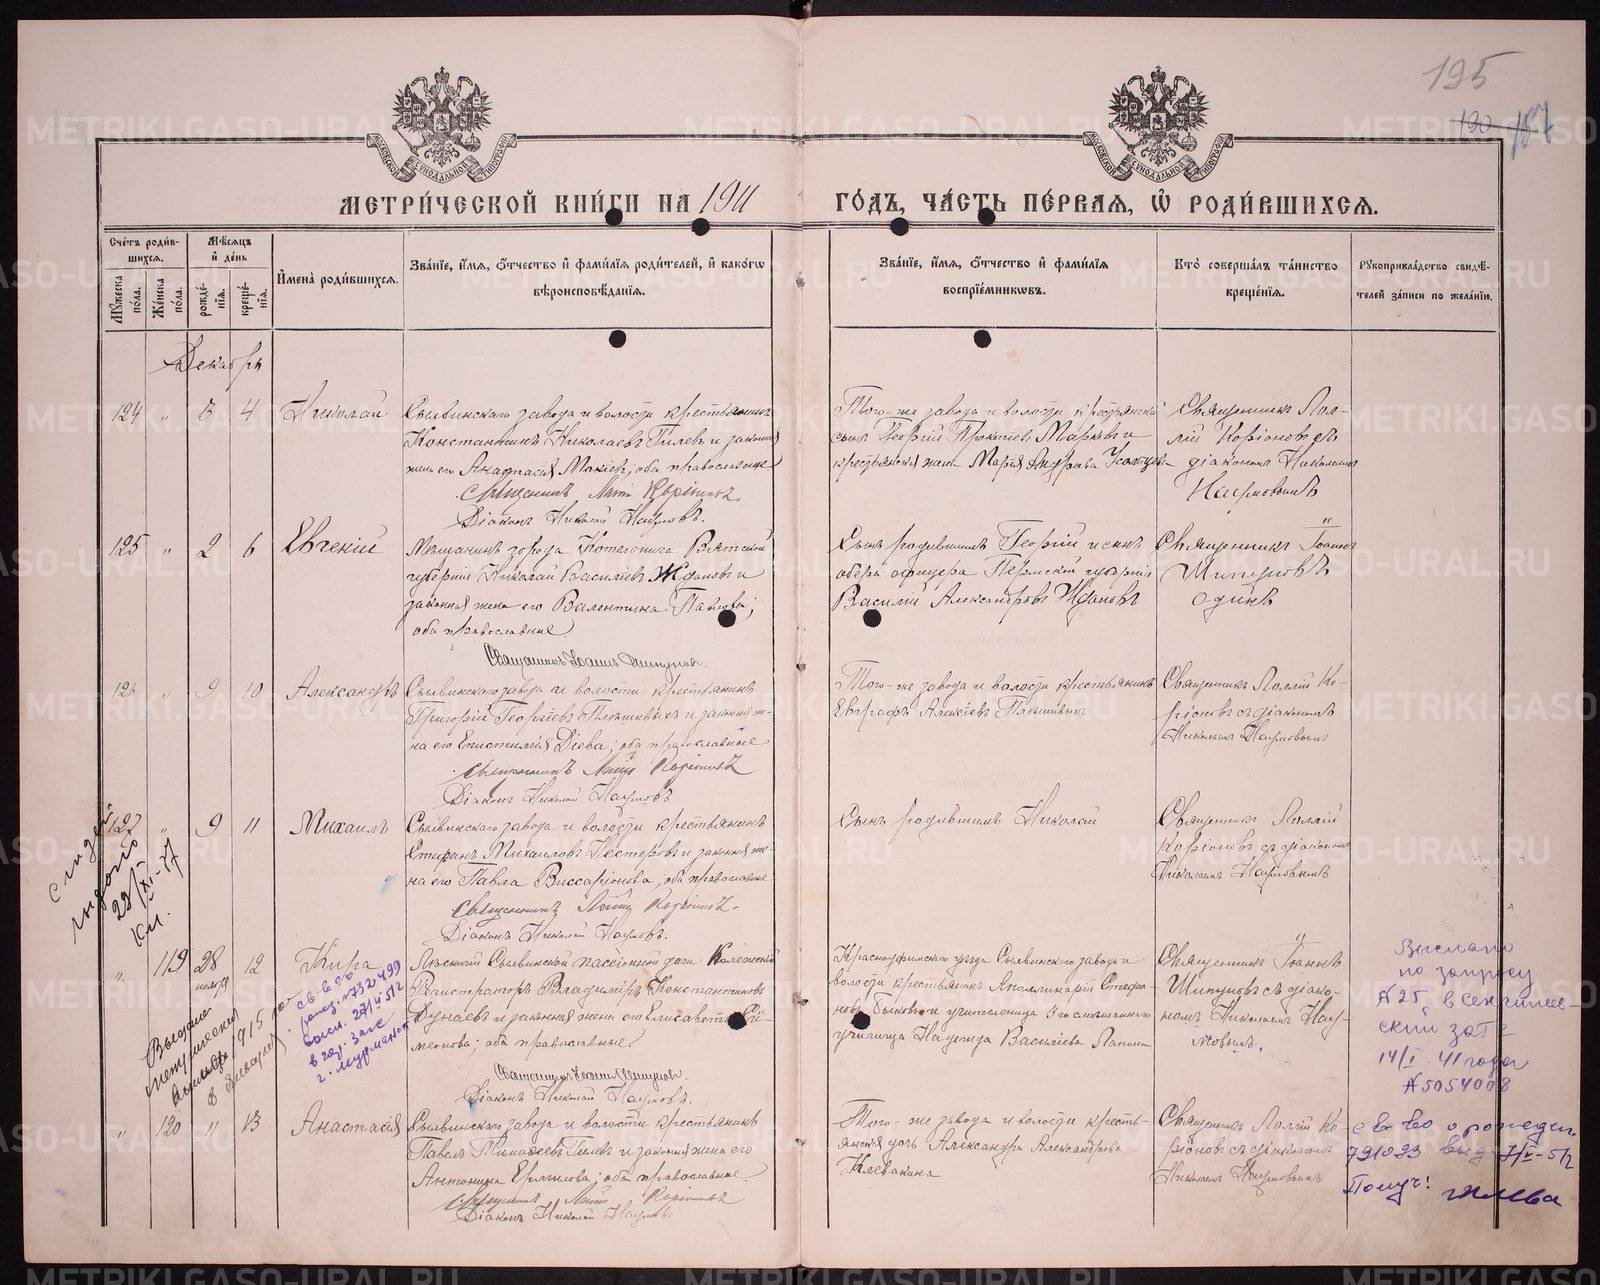 195
190 187
МЕТРИ́ЧЕСКОЙ КНИ́ГИ НА 1911 ГО́ДЪ, ЧА́СТЬ ПЕ́РВАЯ, Ѿ РОДИ́ВШИХСЯ.
Сче́тъ роди́в-
шихся.
Мꙋ́жеска по́ла.
Же́нска по́ла.
Мѣ́сяцъ и де́нь
рожде́-
нїя.
креще́-
нїя.
И́мена̀ роди́вшихся.
Зва́нїе, и́мя, ѻ́тчество и фами́лїя роди́телей, и како́гѡ
вѣроисповѣ́данїя.
Зва́нїе, и́мя, ѻ́тчество и фами́лїя
воспрїе́мникѡвъ.
Кто̀ соверша́лъ та́инство
креще́нїя.
Рꙋкоприкла́дство свидѣ́-
телей за́писи по жела́нїю.
Декабрь
124 " 3 4 Николай
Сылвинскаго завода и волости крестьянинъ
Константинъ Николаевъ Гилевъ и законная
жена его Анастасія ; оба православные
Священникъ
Діаконъ Николай Наумовъ.
Того-же завода и волости крестьянскій
сынъ Георгій Марковъ и
крестьянская жена Марія
Священникъ Лол-
лій Коріоновъ съ
діакономъ Николаемъ
Наумовымъ
125 " 2 6 Евгеній
Мѣщанинъ города Котельнича Вятской
губерніи Николай Василіевъ Ждановъ и
законная жена его Валентина Павлова;
оба православные
Священникъ Іоаннъ Шипуновъ.
Сынъ родившаго Георгій и сынъ
оберъ офицера Пермской губерніи
Василій Александровъ Ждановъ
Священникъ Іоаннъ
Шипуновъ
одинъ
126 " 9 10 Александръ
Сылвинскаго завода и волости крестьянинъ
Григорій Георгіевъ Плѣшивыхъ и законная же-
на его Епистимія Діева; оба православные
Священникъ Лоллій Коріоновъ
Діаконъ Николай Наумовъ
Того-же завода и волости крестьянинъ
Евграфъ Алексіевъ Плѣшивыхъ
Священникъ Лоллій Ко-
ріоновъ съ діакономъ
Николаемъ Наумовымъ
127 " 9 11 Михаилъ
Сылвинскаго завода и волости крестьянинъ
Стефанъ Михаиловъ Нестеровъ и законная же-
на его Павла Виссаріонова; оба православные
Священникъ Лоллій Коріоновъ.
Діаконъ Николай Наумовъ.
Сынъ родившаго Николай
Священникъ Лоллій
Коріоновъ съ діакономъ
Николаемъ Наумовымъ
28/XI-77
" 119 28 ноября 12 Кира
Лѣсничій Сылвинской дачи Колежскій
Регистраторъ Владиміръ Константиновъ
Дунаевъ и законная жена его Елисавета Си-
меонова; оба православные
Священникъ Іоаннъ Шипуновъ.
Діаконъ Николай Наумовъ.
Красноуфимскаго уѣзда Сылвинскаго завода и
волости крестьянинъ Аполлинарій Стефа-
новъ Быковъ и учительница 3го смѣшаннаго
училища Надежда Василіева Лапина
Священникъ Іоаннъ
Шипуновъ съ діако-
номъ Николаемъ Нау-
мовымъ.
Выслано
по запросу
№25
ский загс
14/I-41 года
№5054008
св-во
загс
г. Мурманск
Выдана
1915
" 120 " 13 Анастасія
Сылвинскаго завода и волости крестьянинъ
Павелъ Тимофеевъ Гилевъ и законная жена его
Антонина Ермилова; оба православные.
Священникъ Лоллій Коріоновъ
Діаконъ Николай Наумовъ
Того-же завода и волости кресть-
янская дочь Александра Александрова
Клевакина
Священникъ Лоллій Ко-
ріоновъ съ діакономъ
Николаемъ Наумовымъ
св-во о рожден.
791093 выд. 7/I-51г
Получ:
METRIKI.GASO-URAL.RU